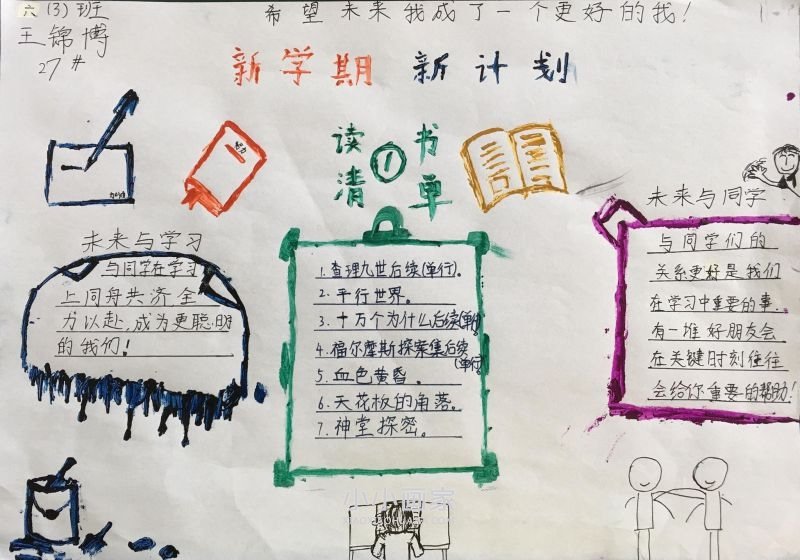 六(3)班
王锦博
27#
希望未来我成了一个更好的我!
新学期 新计划
读书
清单
①
努力
未来与学习
与同学在学习
上同舟共济全
力以赴,成为更聪明
的我们!
1.查理九世后续(单行)。
2.平行世界。
3.十万个为什么后续(单行)
4.福尔摩斯探案集后续
(单行)
5.血色黄昏。
6.天花板的角落。
7.神堂探密。
未来与同学
与同学们的
关系更好是我们
在学习中重要的事,
有一堆好朋友会
在关键时刻往往
会给你重要的帮助!
小小画家